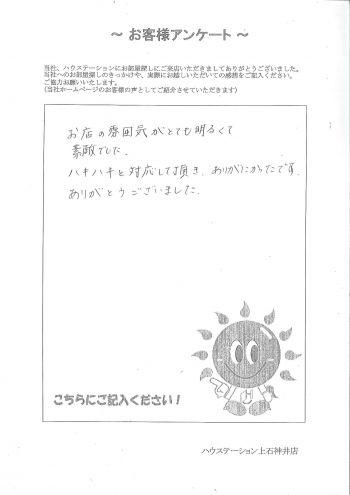 ～ お客様アンケート ～
当社、ハウステーションにお部屋探しにご来店いただきましてありがとうございました。
当社へのお部屋探しのきっかけや、実際にお越しいただいての感想をご記入ください。
ご協力お願いいたします。
(当社ホームページのお客様の声としてご紹介させていただきます)
お店の雰囲気がとても明るくて
素敵でした。
ハキハキと対応して頂き、ありがたかったです。
ありがとうございました。
こちらにご記入ください！
ハウステーション上石神井店